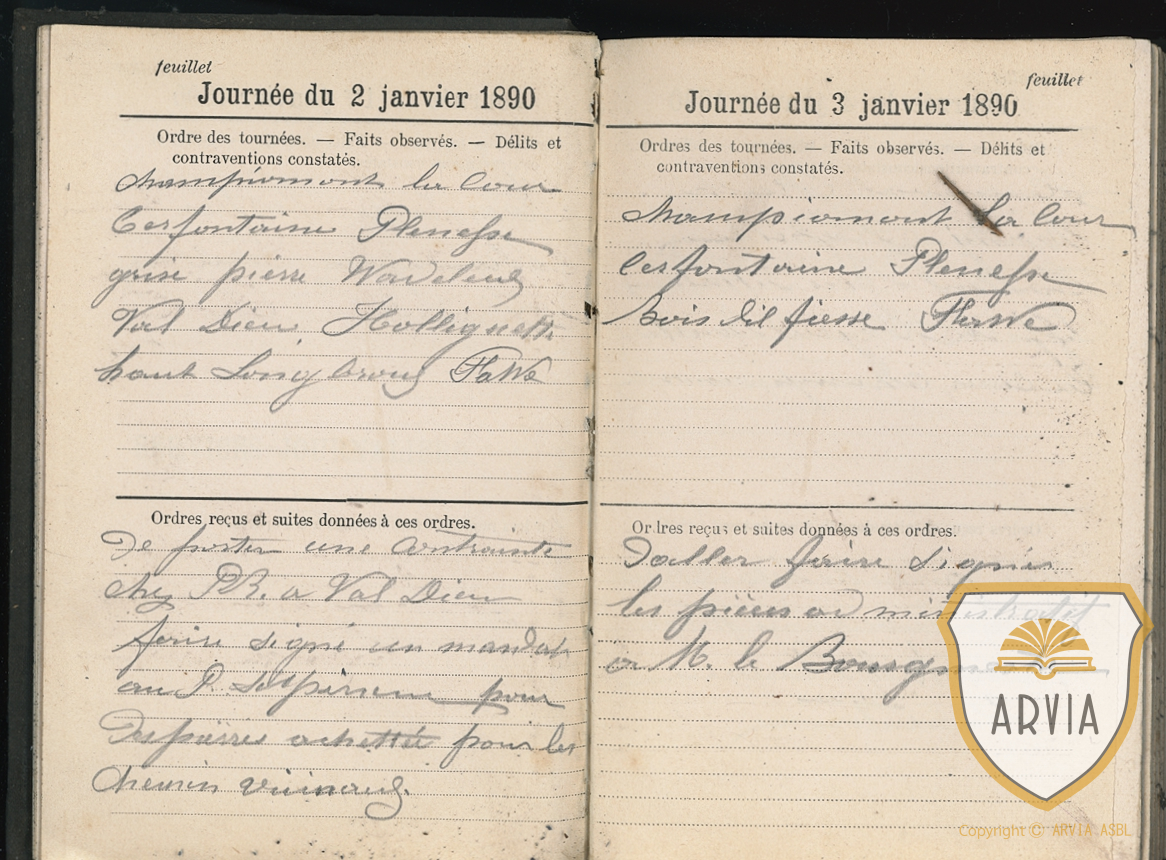 feuillet
Journée du 2 janvier 1890
Ordre des tournées. — Faits observés. — Délits et
contraventions constatés.
Championmont la Cour
Cerfontaine Plenesse
grise pierre Wadeleux
Val Dieu Holliguette
haut Longbroux
De porter une Contrainte
Ordres reçus et suites données à ces ordres.
chez PR. a Val Dieu
faire signé un mandat
au P. Supérieur pour
des pierres achettée pour les
chemin vicinaux.
feuillet
Journée du 3 janvier 1890
Ordres des tournées. — Faits observés. — Délits et
contraventions constatés.
Championmont La Cour
Cerfontaine Plenesse
Bois del fiesse
Ordres reçus et suites données à ces ordres.
D'aller faire signés
les pièces ad ministratif
a M. le Bourgm
ARVIA
Copyright © ARVIA ASBL